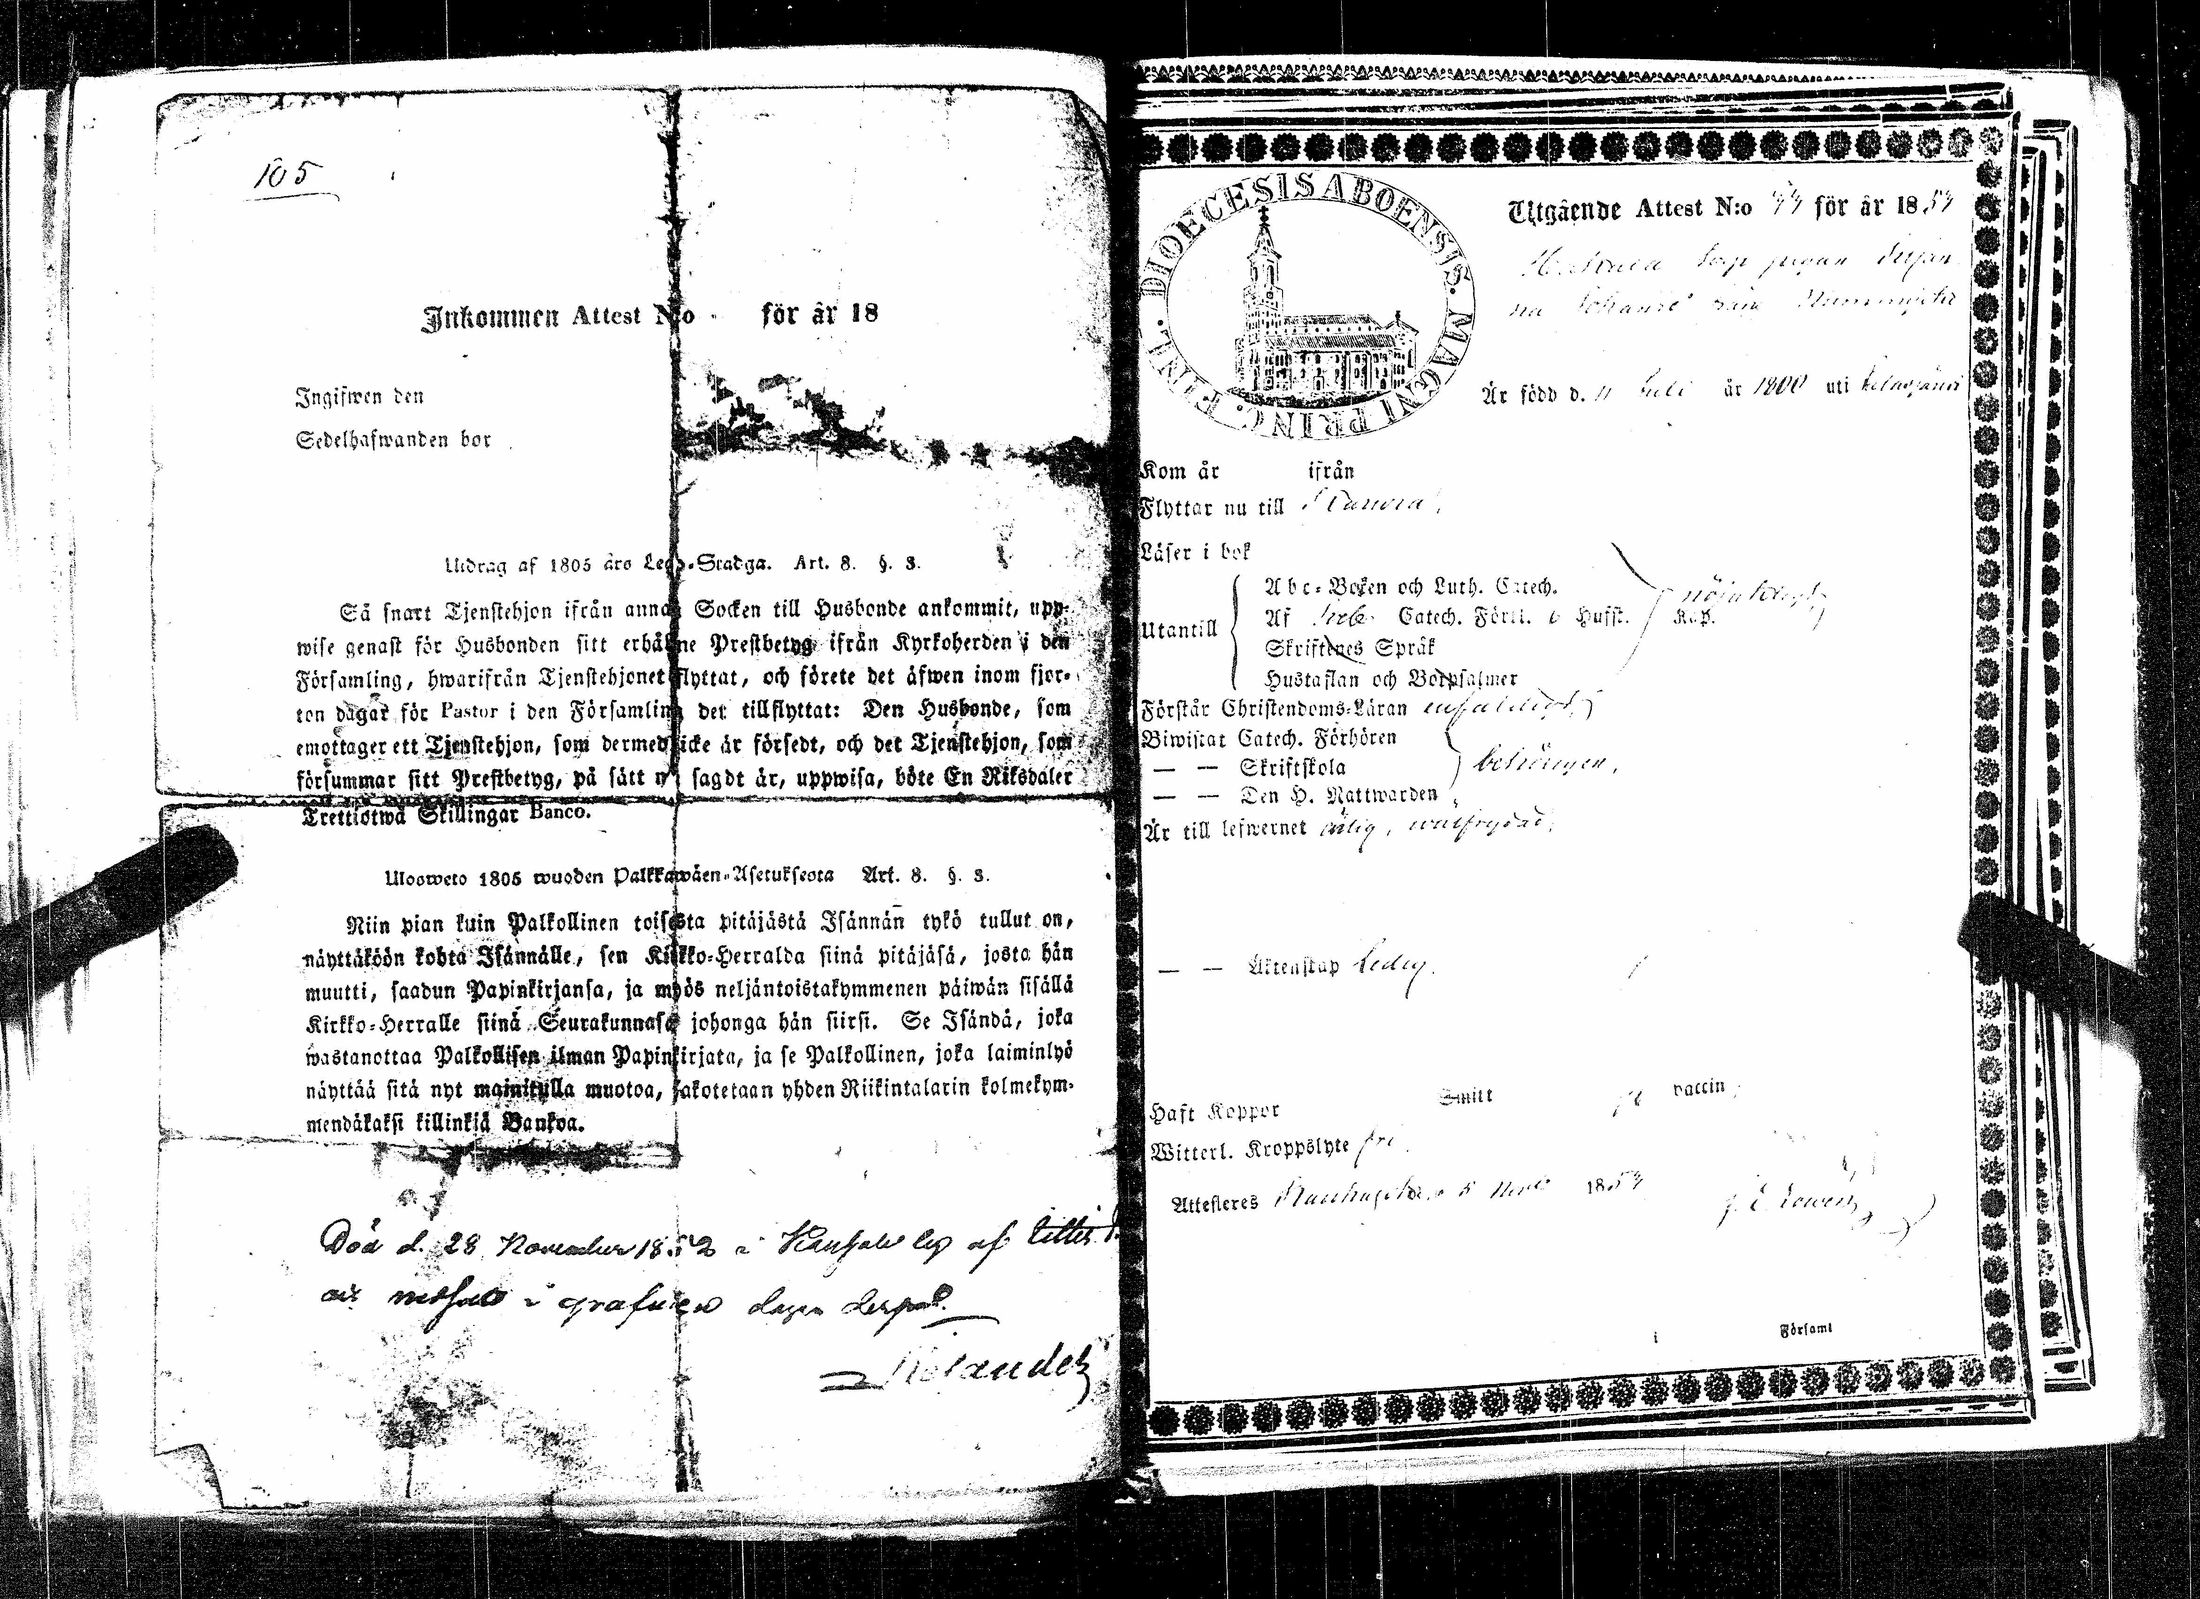 105
Inkommen Attest N:o för år 18
Ingifwen den
Sedelhafwanden bor
Utdrag af 1805 års Lego-Stadga. Art. 8. §. 3.
Så snart Tjenstehjon ifrån annan Socken till Husbonde ankommit, upp-
wise genast för Husbonden sitt erhållne Prestbetyg ifrån Kyrkoherden i den
Församling, hwarifrån Tjenstehjonet flyttat, och förete det äfwen inom fjor-
ton dagar för Pastor i den Församling det tillflyttat: Den Husbonde, som
emottager ett Tjenstehjon, som dermed icke är försedt, och det Tjenstehjon, som
försummar sitt Prestbetyg, på sätt nu sagdt är, uppwisa, böte En Riksdaler
Trettiotwå Skillingar Banco.
Ulosweto 1805 wuoden Palkkawäen-Asetuksesta Art. 8. §. 3.
Niin pian kuin Palkollinen toisesta pitäjästä Isännän tykö tullut on,
näyttäköön kohta Isännälle, sen Kirkko-Herralda siinä pitäjäsä, josta hän
muutti, saadun Papinkirjansa, ja myös neljäntoistakymmenen päiwän sisällä
Kirkko-Herralle siinä Seurakunnasa johonga hän siirsi. Se Isändä, joka
wastanottaa Palkollisen ilman Papinkirjata, ja se Palkollinen, joka laiminlyö
näyttää sitä nyt mainitulla muotoa, sakotetaan yhden Riikintalarin kolmekym-
mendäkaksi killinkiä Bankoa.
Död d. 28 November 18 i af
i grafwen dagen
DIOECESIS ABOENSIS. MAGNI PRINC. FINL.
Utgående Attest N:o för år 1854
Är född d. 11 Juli år 1800 uti
Kom år ifrån
Flyttar nu till
Läser i bok
Abc-Boken och Luth. Catech.
Utantill Af Catech. Förkl. Husst. Kap.
Skriftenes Språk
Hustaflan och Botpsalmer
Förstår Christendoms-Läran enfaldigt,
Biwistat Catech. Förhören
— — Skriftskola behörigen,
— — Den H. Nattwarden
Är till lefwernet ärlig, wälfrejdad,
— — Äktenskap Ledig.
Haft Koppor Smitt vaccin
Witterl. Kroppslyte fri.
Attesteres 1854
i Församl